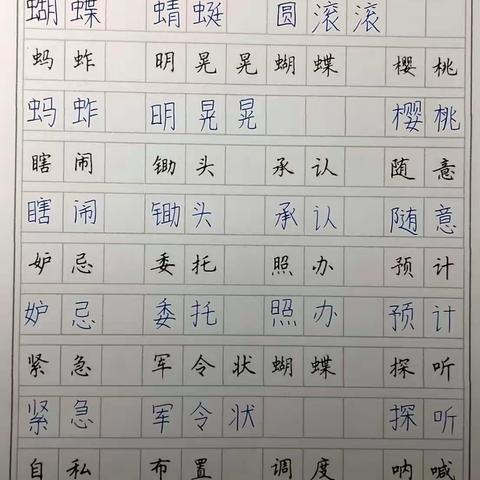 蝴蝶 蜻蜓 圆滚滚
蚂蚱 明晃晃 蝴蝶 樱桃
蚂蚱 明晃晃 樱桃
瞎闹 锄头 承认 随意
瞎闹 锄头 承认 随意
妒忌 委托 照办 预计
妒忌 委托 照办 预计
紧急 军令状 蝴蝶 探听
紧急 军令状 探听
自私 布置 调度 呐喊